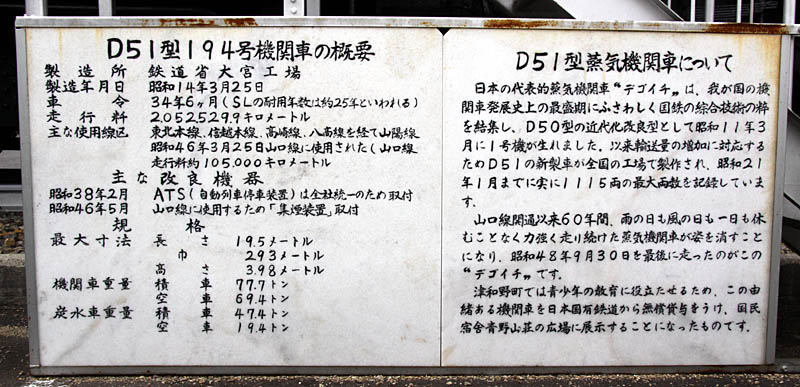 D51型194号機関車の概要
製造所 鉄道省大宮工場
製造年月日 昭和14年3月25日
車令 34年6ヶ月（SLの耐用年数は約25年といわれる）
走行料 2052529.9キロメートル
主な使用線区 東北本線、信越本線、高崎線、八高線を経て山陽線
昭和46年3月25日山口線に使用された（山口線
走行料約105,000キロメートル
主な改良機器
昭和38年2月 ATS（自動列車停車装置）は全社統一のため取付
昭和46年5月 山口線に使用するため「集煙装置」取付
規格
最大寸法 長さ 19.5メートル
巾 2.93メートル
高さ 3.98メートル
機関車重量 積車 77.7トン
空車 69.4トン
炭水車重量 積車 47.4トン
空車 19.4トン
D51型蒸気機関車について
日本の代表的蒸気機関車“デゴイチ”は、我が国の機
関車発展史上の最盛期にふさわしく国鉄の綜合技術の粋
を結集し、D50型の近代化改良型として昭和11年3
月に1号機が生れました。以来輸送量の増加に対応する
ためD51の新製車が全国の工場で製作され、昭和21
年1月までに実に1115両の最大両数を記録していま
す。
山口線開通以来60年間、雨の日も風の日も一日も休
むことなく力強く走り続けた蒸気機関車が姿を消すこと
になり、昭和48年9月30日を最後に走ったのがこの
“デゴイチ”です。
津和野町では青少年の教育に役立たせるため、この由
緒ある機関車を日本国有鉄道から無償貸与をうけ、国民
宿舎青野山荘の広場に展示することになったものです。